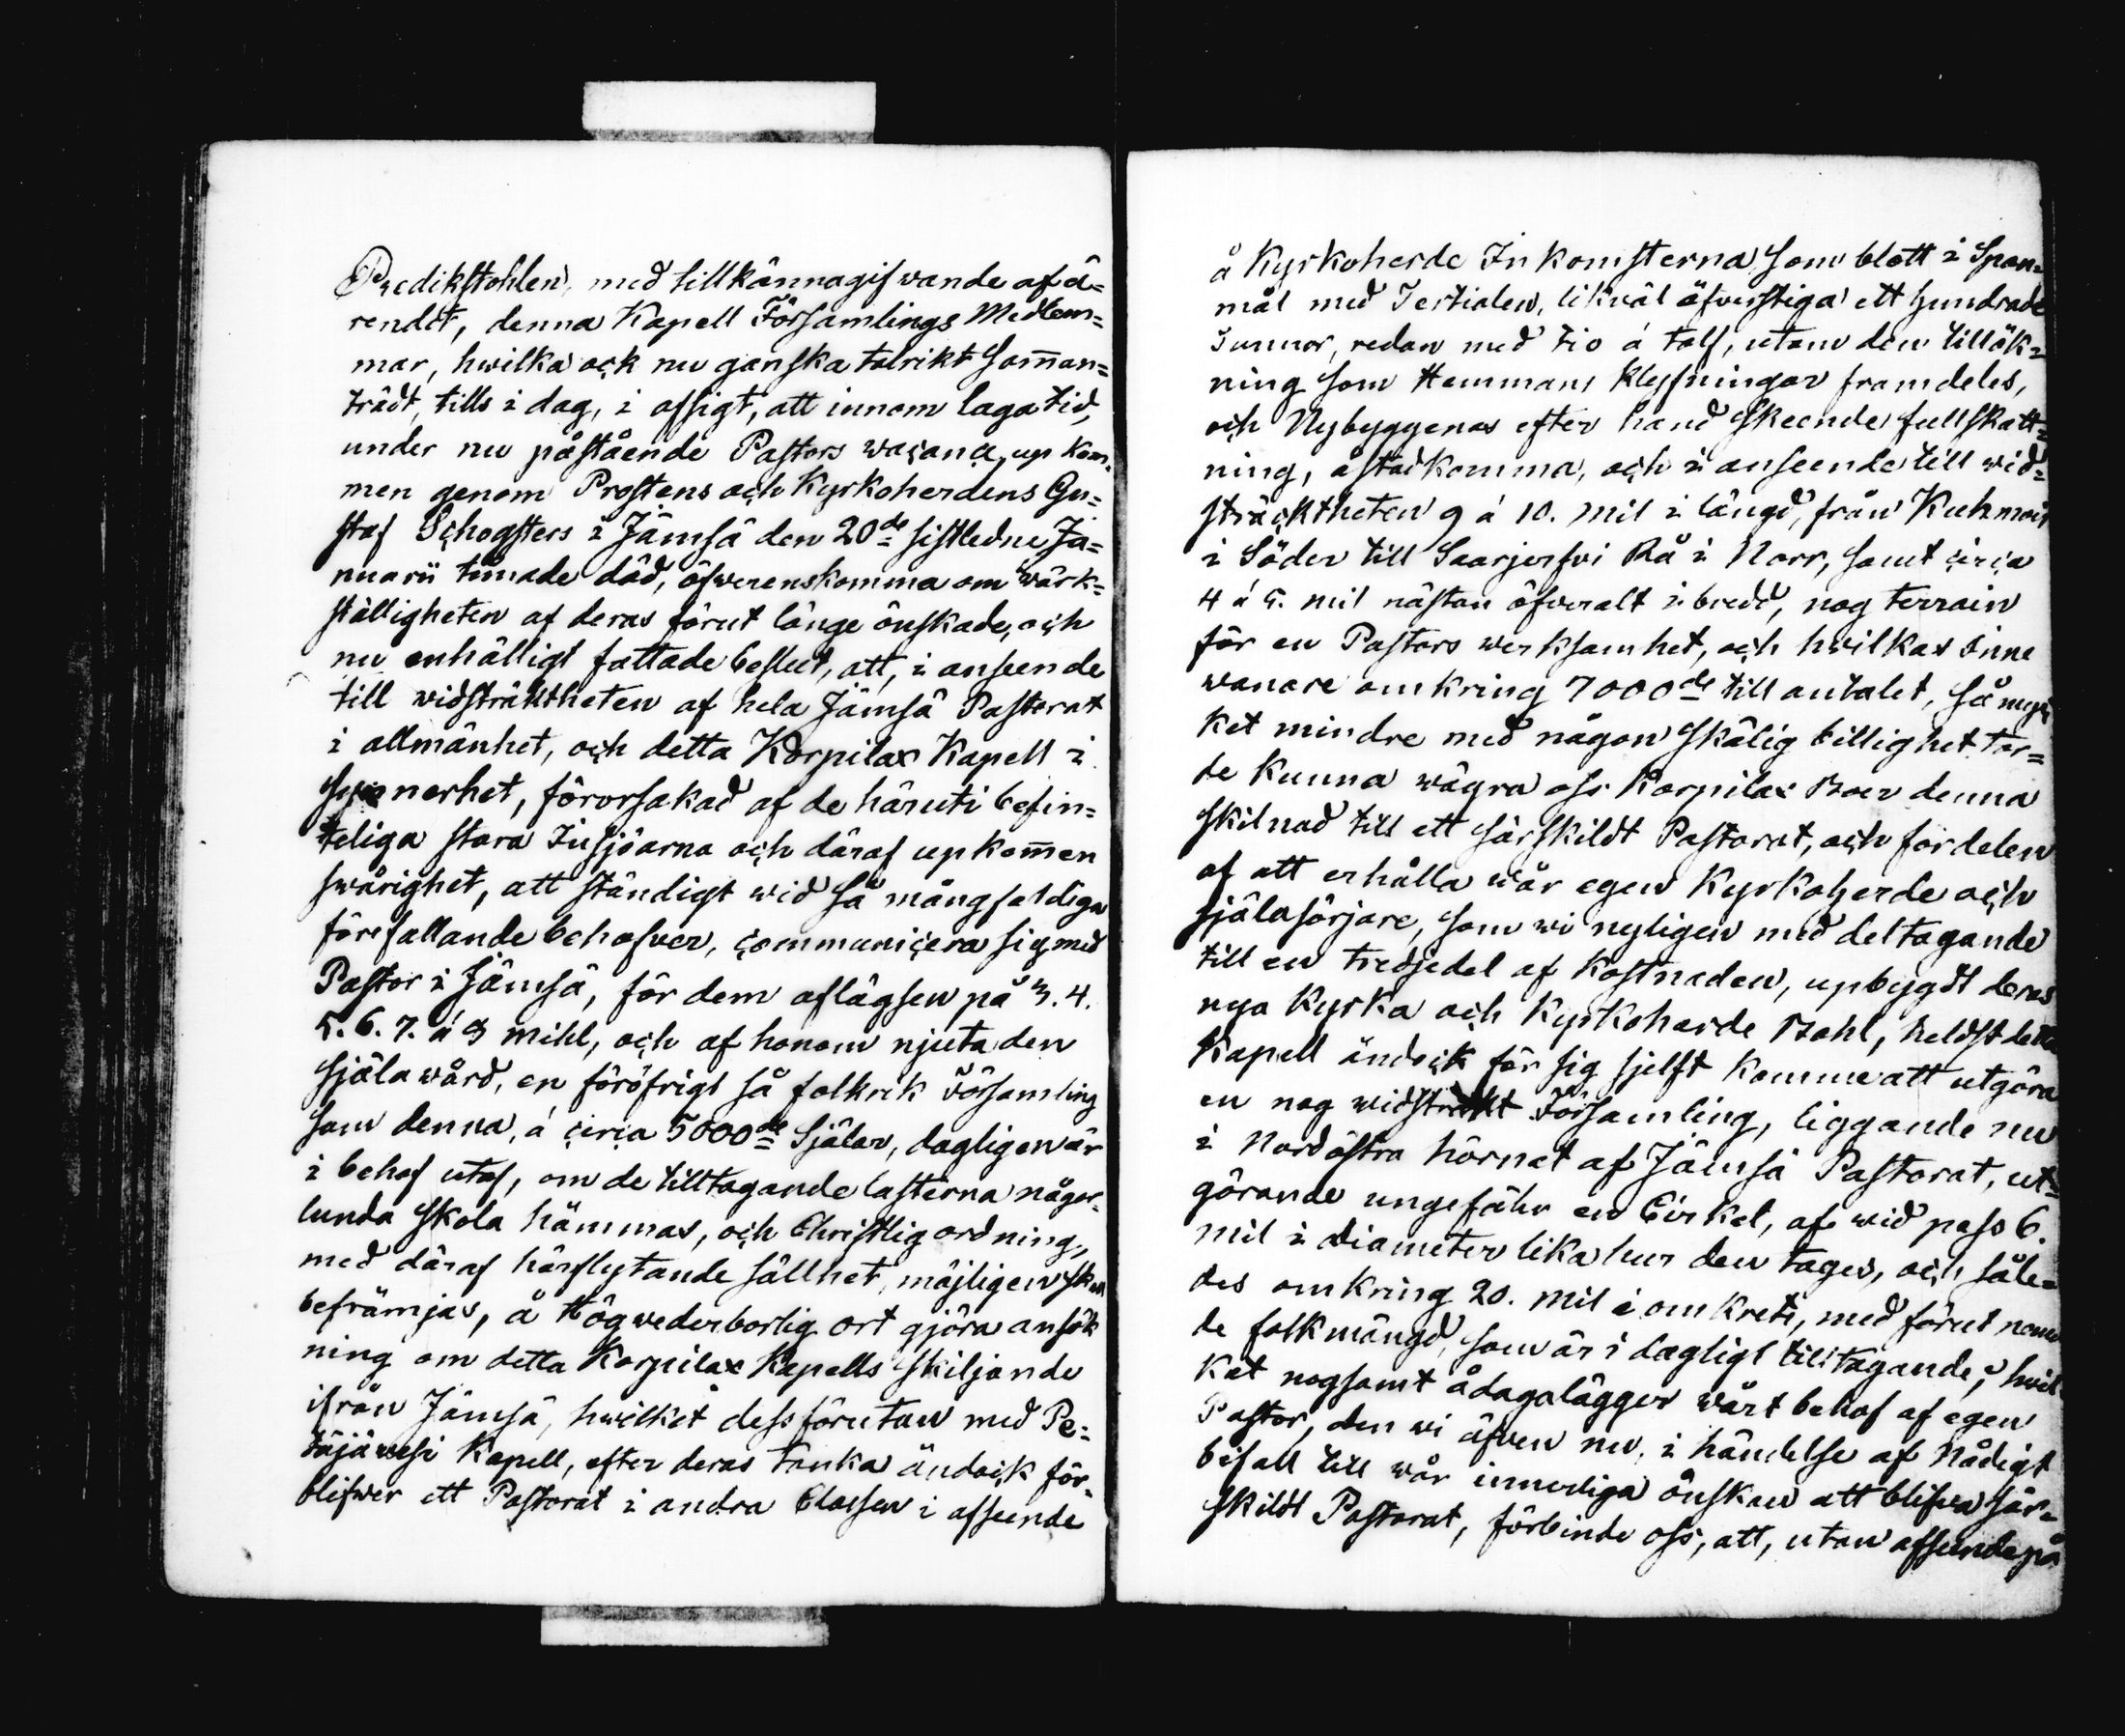 Predikstohlen, med tillkännagifwande af ä=
rendet, denna Kapell Församlings Medlem=
mar, hwilka ock nu ganska talrikt som̄an=
trädt, tills i dag, i afsigt, att innom laga tid,
under nu påstående Pastors wacance, up kom=
men genom Prostens och Kyrkoherdens Gu=
staf Schogsters i Jämsä den 20de sistledne Ja=
nuarii timade död, öfwerenskomma om wärk=
ställigheten af deras förut länge önskade, och
nu enhälligt fattade beslut, att, i anseende
till widsträktheten af hela Jämsä Pastorat
i allmänhet, och detta Korpilax Kapell i
synnerhet, förorsakad af de häruti befin=
teliga stora Insjöarna och däraf upkom̄en
swårighet, att ständigt wid så mångfaldiga
förefallande behofver, communicera sig med
Pastor i Jämsä, för dem aflägsen på 3. 4.
5. 6. 7. á 8 mihl, och af honom njuta den
själawård, en föröfrigt så folkrik Församling
som denna, á circa 5000de Själar, dagligen är
i behof utaf, om de tilltagande lasterna någor=
lunda skola hämmas, och Christlig ordning,
med däraf härflytande sällhet, möjligen skall
befrämjas, å Högwederborlig ort gjöra ansök
ning om detta Korpilax Kapells skiljande
ifrån Jämsä, hwilket dessförutan med Pe=
täjäwesi Kapell, efter deras tanka ändock för=
blifwer ett Pastorat i andra Classen i afseende
å Kyrkoherde Inkomsterna som blott i Span=
mål med Tertialen, likväl äfverstiga ett hundrade
Tunnor, redan med tio á tolf, utom den tillök=
ning som Hemmans Klyfningar framdeles,
och Nybyggenas efter hand skeende fullskatt=
ning, åstadkomma, och i anseende till wid=
sträcktheten 9 á 10. mil i längd, från Kuhmois
i Söder till Saarjerfvi Rå i Norr, samt circa
4 á 5. mil nästan öfveralt i bredd, nog terrain
för en Pastors werksamhet, och hwilkas inne
wanare omkring 7000de till antalet, så myc
ket mindre med någon skälig billighet tor=
de kunna wägra oss Korpilax Boer denna
skilnad till ett särskildt Pastorat, och fördelen
af att erhålla wår egen Kyrkoherde och
själasörjare, som wi nyligen med deltagande
till en tredjedel af Kostnaden, upbygdt deras
nya Kyrka och Kyrkoherde Bohl, heldst detta
Kapell ändock för sig sjelft komme att utgöra
en nog widsträkt Församling, liggande nu
i Nordöstra hörnet af Jämsä Pastorat, ut=
görande ungefähr en Cirkel, af wid pass 6.
mil i diameter lika hur den tages, och såle=
des omkring 20. mil i omkrets, med förut nämn
de folkmängd, som är i dagligt tilltagande, hwil
ket nogsamt ådagalägger wårt behof af egen
Pastor, den wi äfven nu, i händelse af Nådigt
bifall till wår innerliga önskan att blifva sär=
skildt Pastorat, förbinde oss, att, utan afseende på